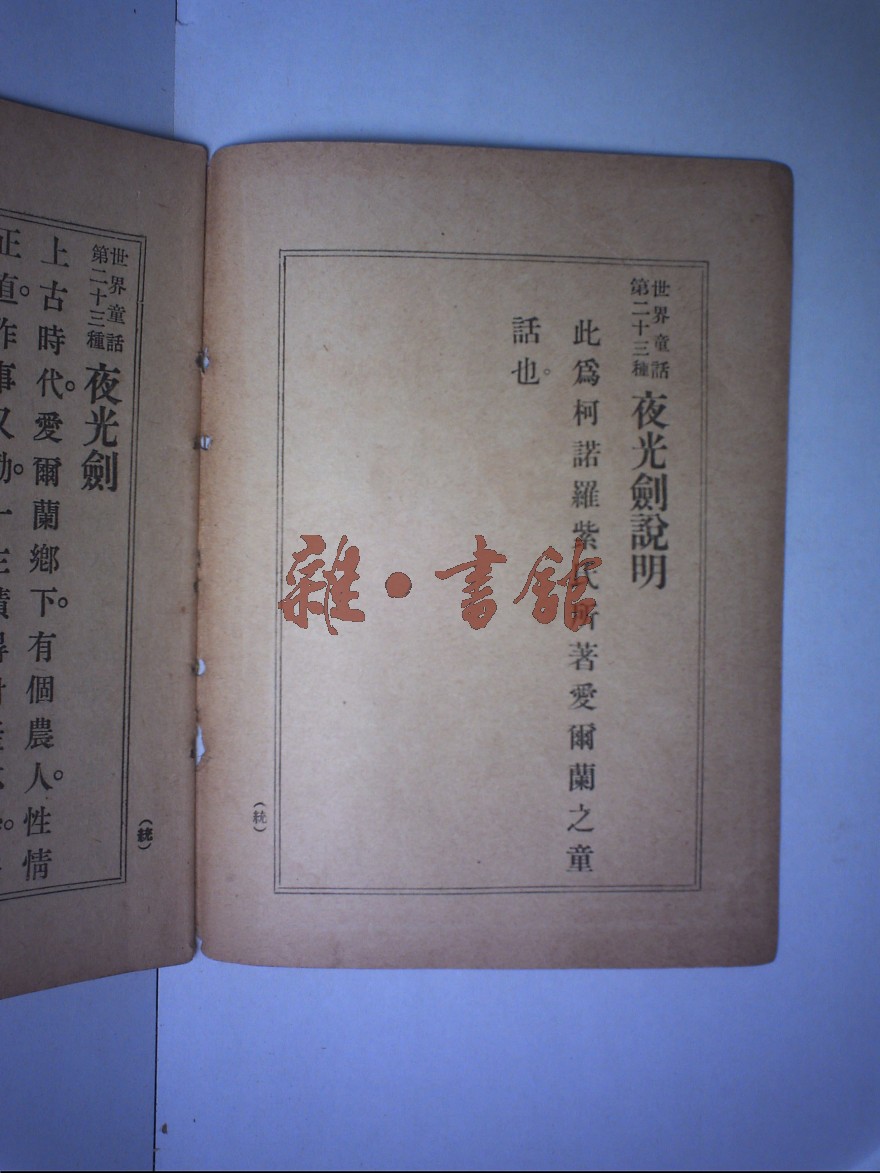 世界童話
第二十三種
夜光劍說明
此爲柯諾羅紫氏所著愛爾蘭之童
話也。
(統)
世界童話
第二十三種
夜光劍
上古時代。愛爾蘭鄉下。有個農人。性情
正直。作事又勤。一生積
(統)
雜·書館